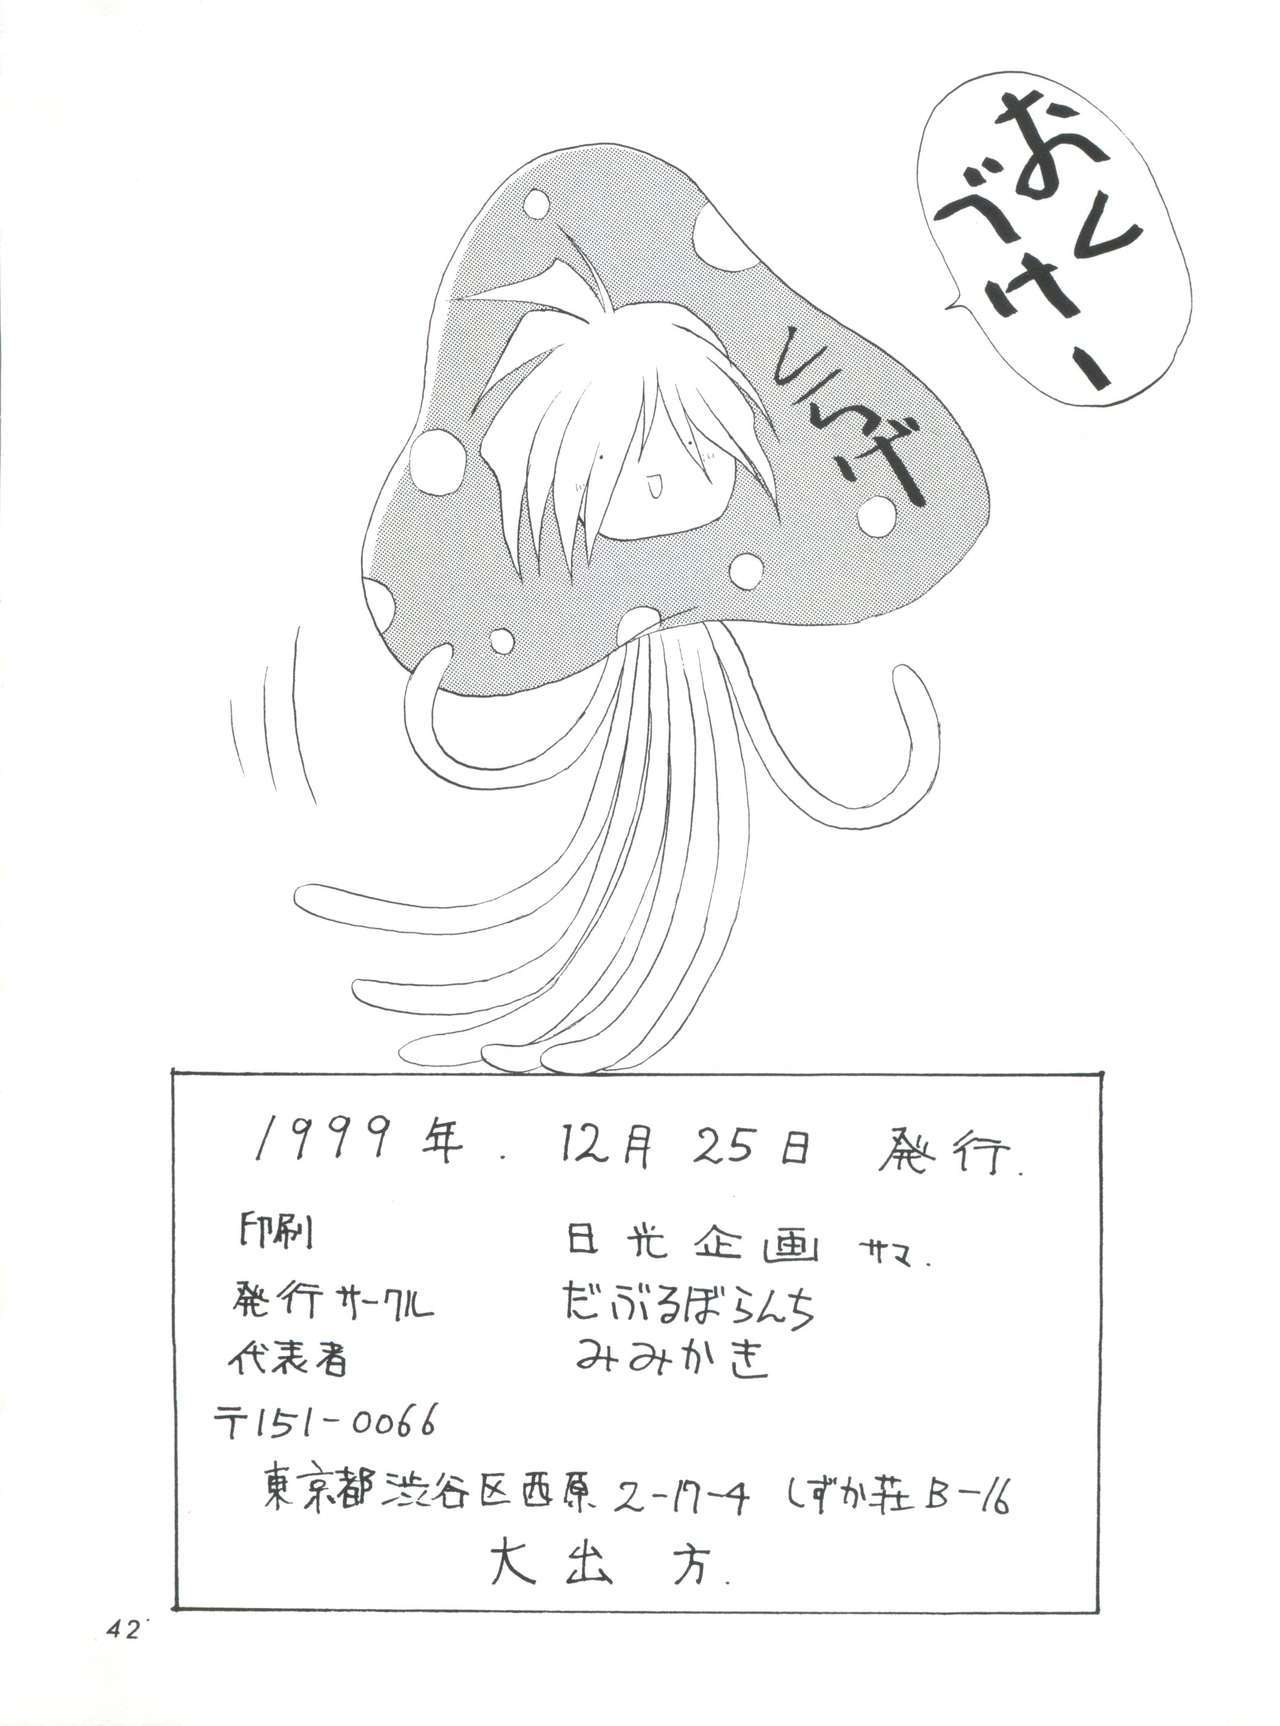 おくづけー
1999年. 12月25日 発行.
印刷 日光企画 サマ.
発行サークル だぶるぼらんち
代表者 みみかき
〒151-0066
東京都渋谷区西原2-17-4 しずか荘B-16
大出方.
42